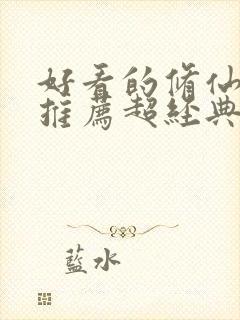 好看的脩仙
推薦超經典
藍水